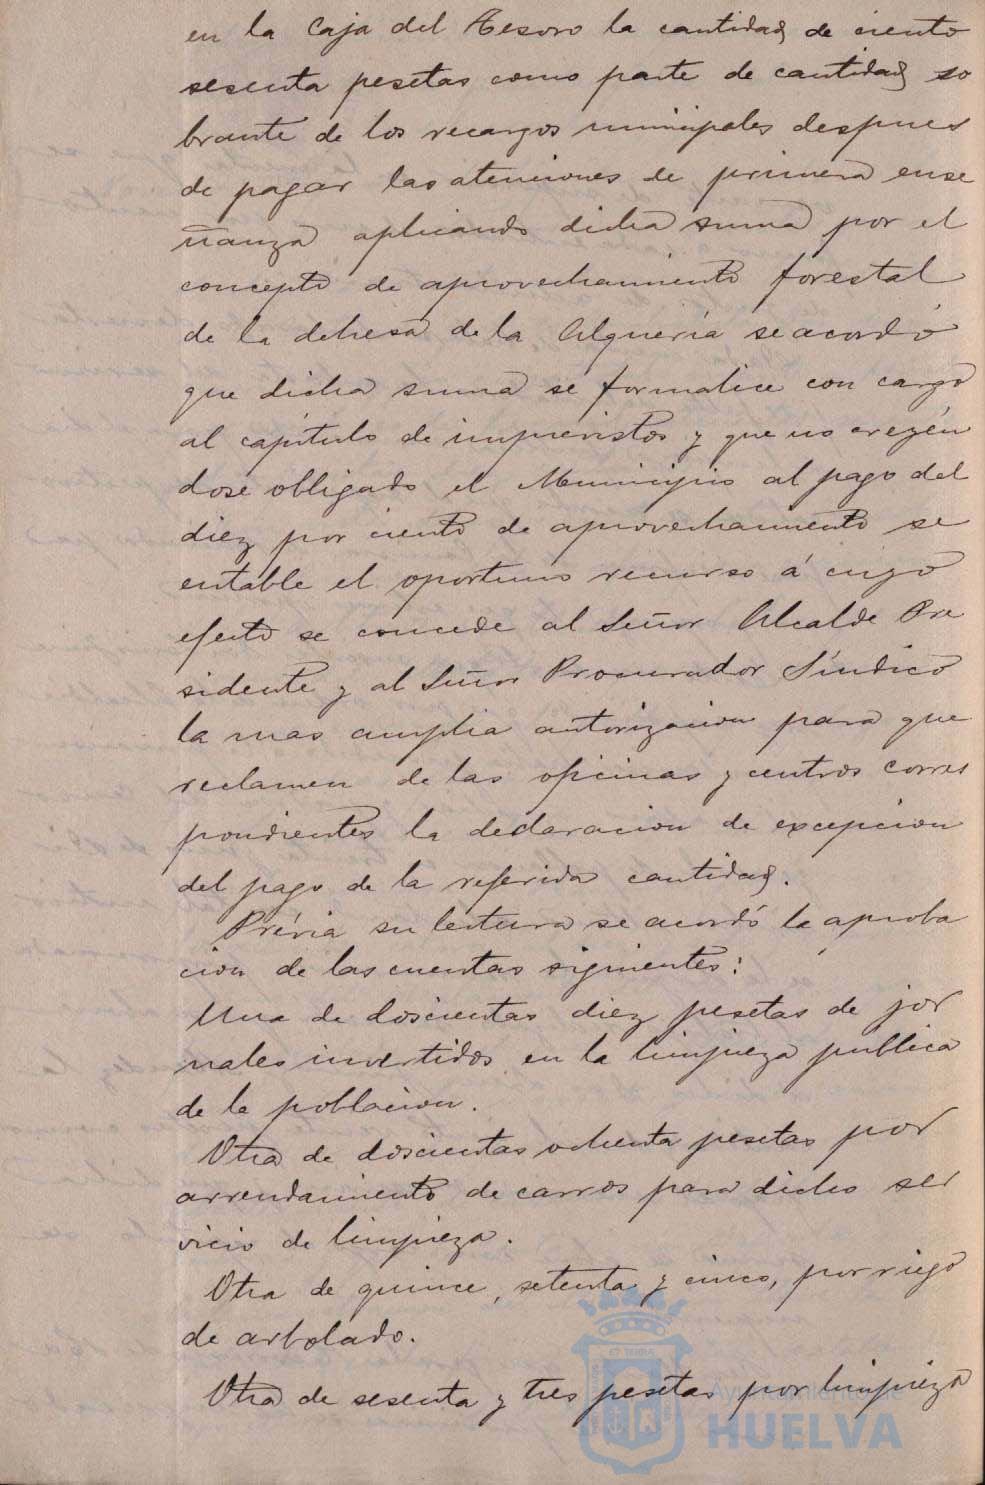 en la Caja del Tesoro la cantidad de ciento
sesenta pesetas como parte de cantidad so
brante de los recargos municipales despues
de pagar las atenciones de primera ense
ñanza aplicando dicha suma por el
concepto de aprovechamiento forestal
de la dehesa de la Alquería se acordó
que dicha suma se formalice con cargo
al capítulo de imprevistos y que no creyén
dose obligado el Municipio al pago del
diez por ciento de aprovechamiento se
entable el oportuno recurso á cuyo
efecto se concede al Señor Alcalde Pre
sidente y al Señor Procurador Síndico
la mas amplia autorizacion para que
reclamen de las oficinas y centros corres
pondientes la declaracion de excepcion
del pago de la referida cantidad.
Prévia su lectura se acordó la aproba
cion de las cuentas siguientes:
Una de doscientas diez pesetas de jor
nales invertidos en la limpieza publica
de la poblacion.
Otra de doscientas ochenta pesetas por
arrendamiento de carros para dicho ser
vicio de limpieza.
Otra de quince, setenta y cinco, por riego
de arbolado.
Otra de sesenta y tres pesetas por limpieza
Ayuntamiento de
HUELVA